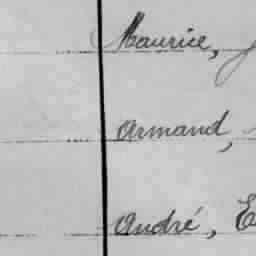 Maurice,
Armand,
André, E